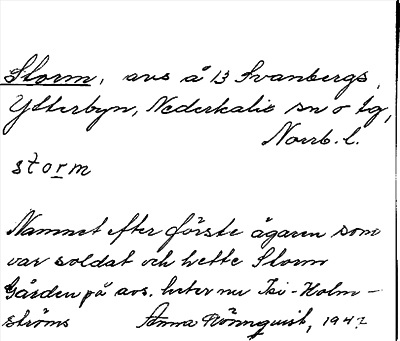 Storm, avs å 13 Svanbergs,
Ytterbyn, Nederkalix sn o tg,
Norrb. l.
storm
Namnet efter förste ägaren som
var soldat och hette Storm
Gården på avs. heter nu Isi-Holm-
ströms Anna Rönnquist, 1942